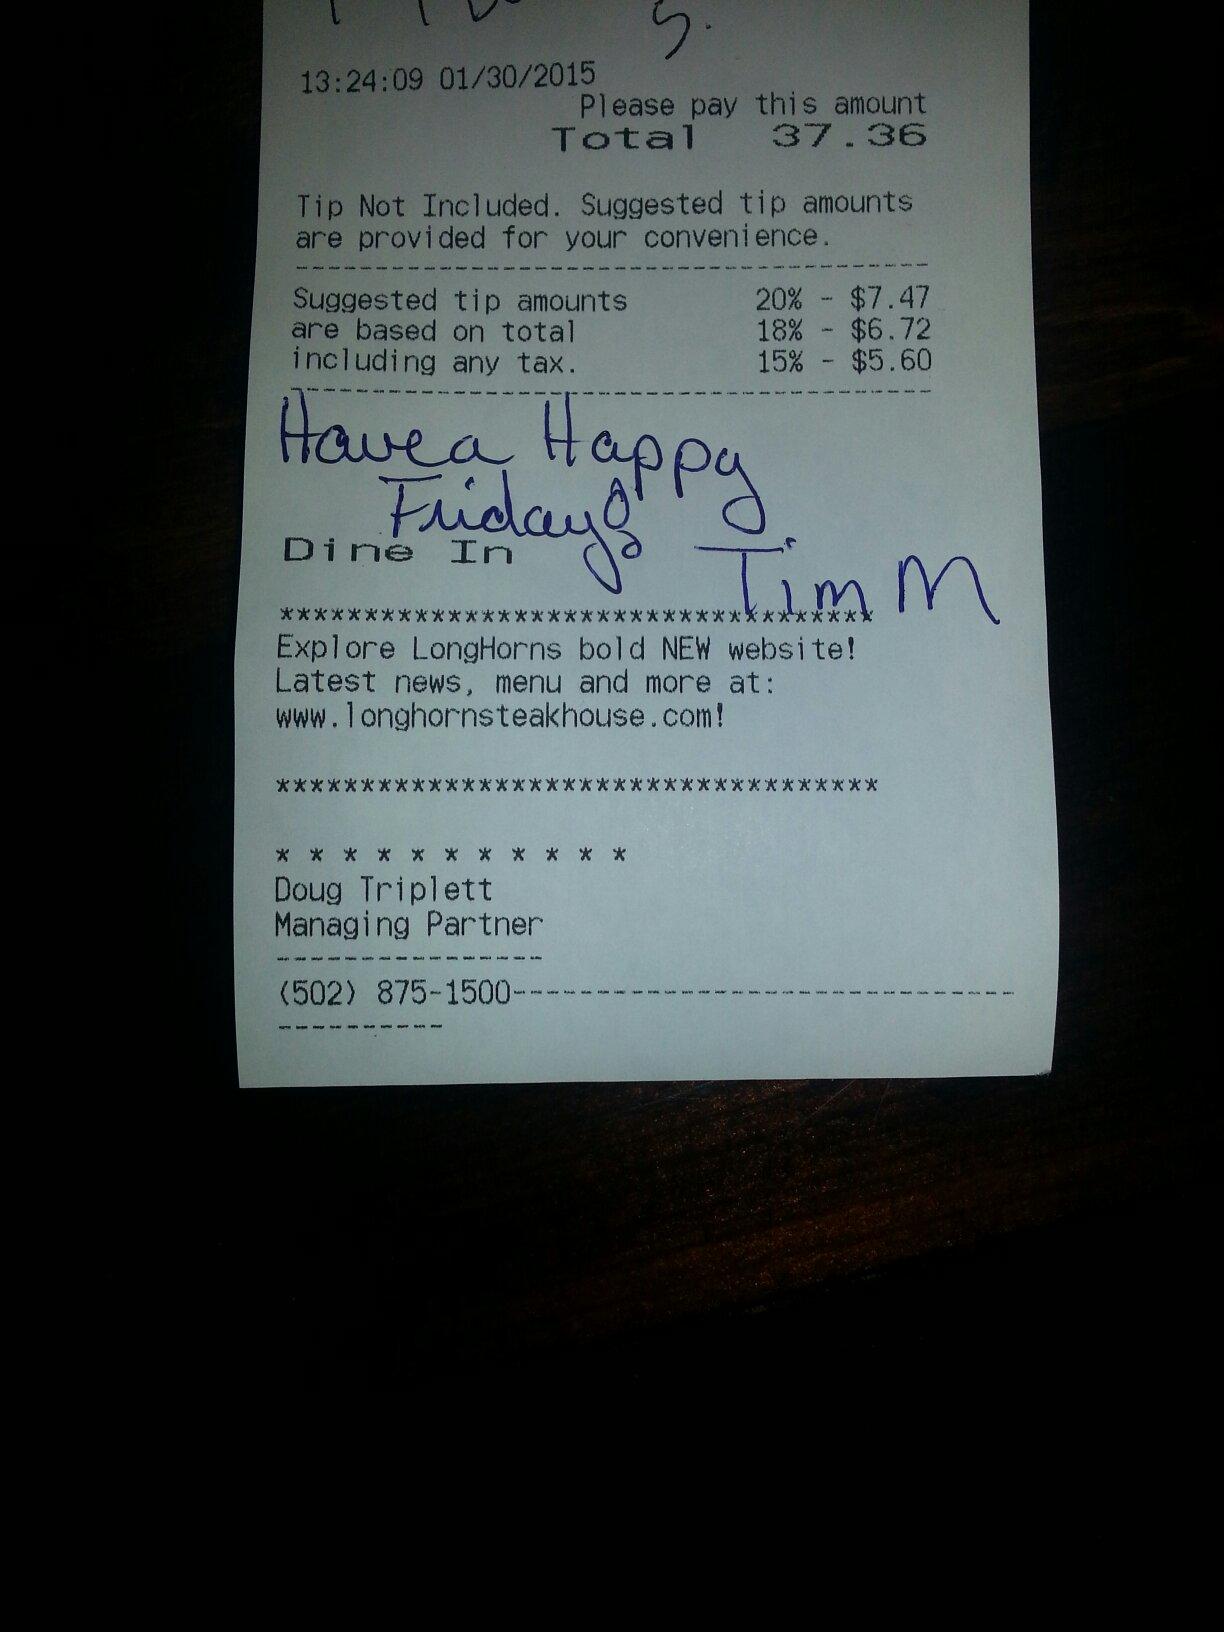 13:24:09 01/30/2015
Please pay this amount
Total 37.36
Tip Not Included. Suggested tip amounts
are provided for your convenience.
----------------------------------------
Suggested tip amounts 20% - $7.47
are based on total 18% - $6.72
including any tax. 15% - $5.60
----------------------------------------
Have a Happy
Friday!
Dine In Tim M
************************************
Explore LongHorns bold NEW website!
Latest news, menu and more at:
www.longhornsteakhouse.com!
************************************
* * * * * * * * * * *
Doug Triplett
Managing Partner
----------------
(502) 875-1500------------------------------
----------